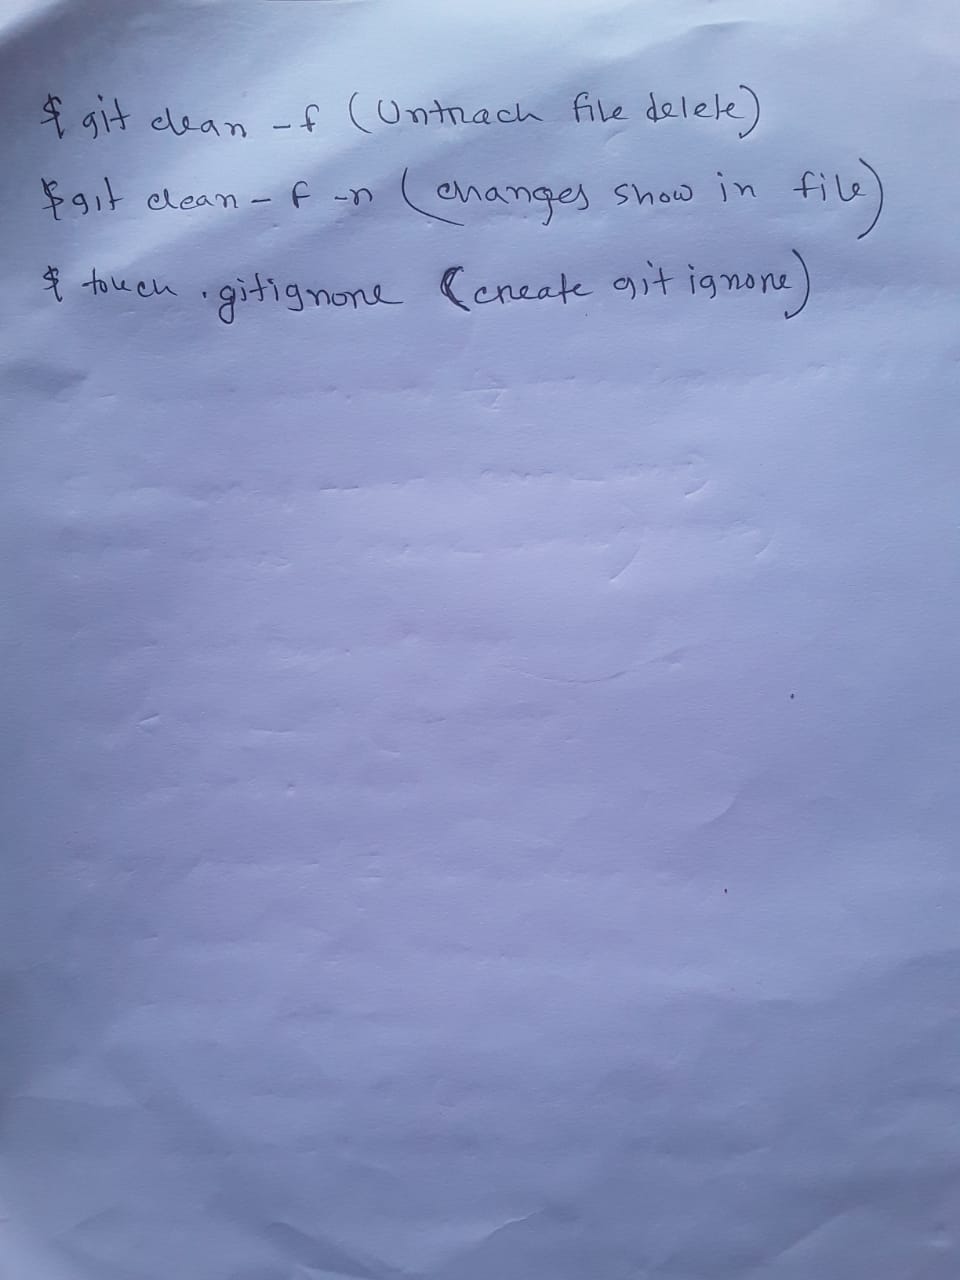 $ git clean -f (Untrack file delete)
$ git clean -f -n (changes show in file)
$ touch .gitignore (create git ignore)